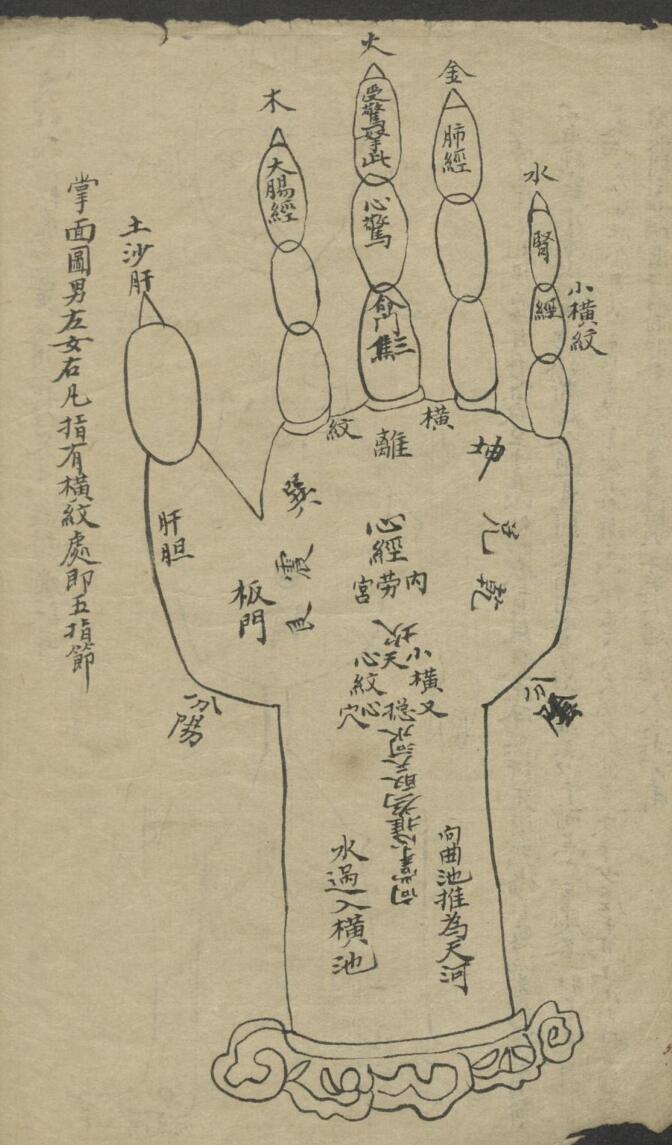 掌面圖男左女右凡指有橫紋處即五指節
土沙肝
木
大腸經
火
受驚掐此
心驚
命門
三焦
金
肺經
水
腎
經
小橫紋
橫
紋
離
坤
兌
乾
巽
震
艮
坎
心經
內勞宮
板門
肝胆
小橫紋
天心穴
又穏心
分陽
分陰
向掌心推為取天河水
向曲池推為天河
水過入橫池